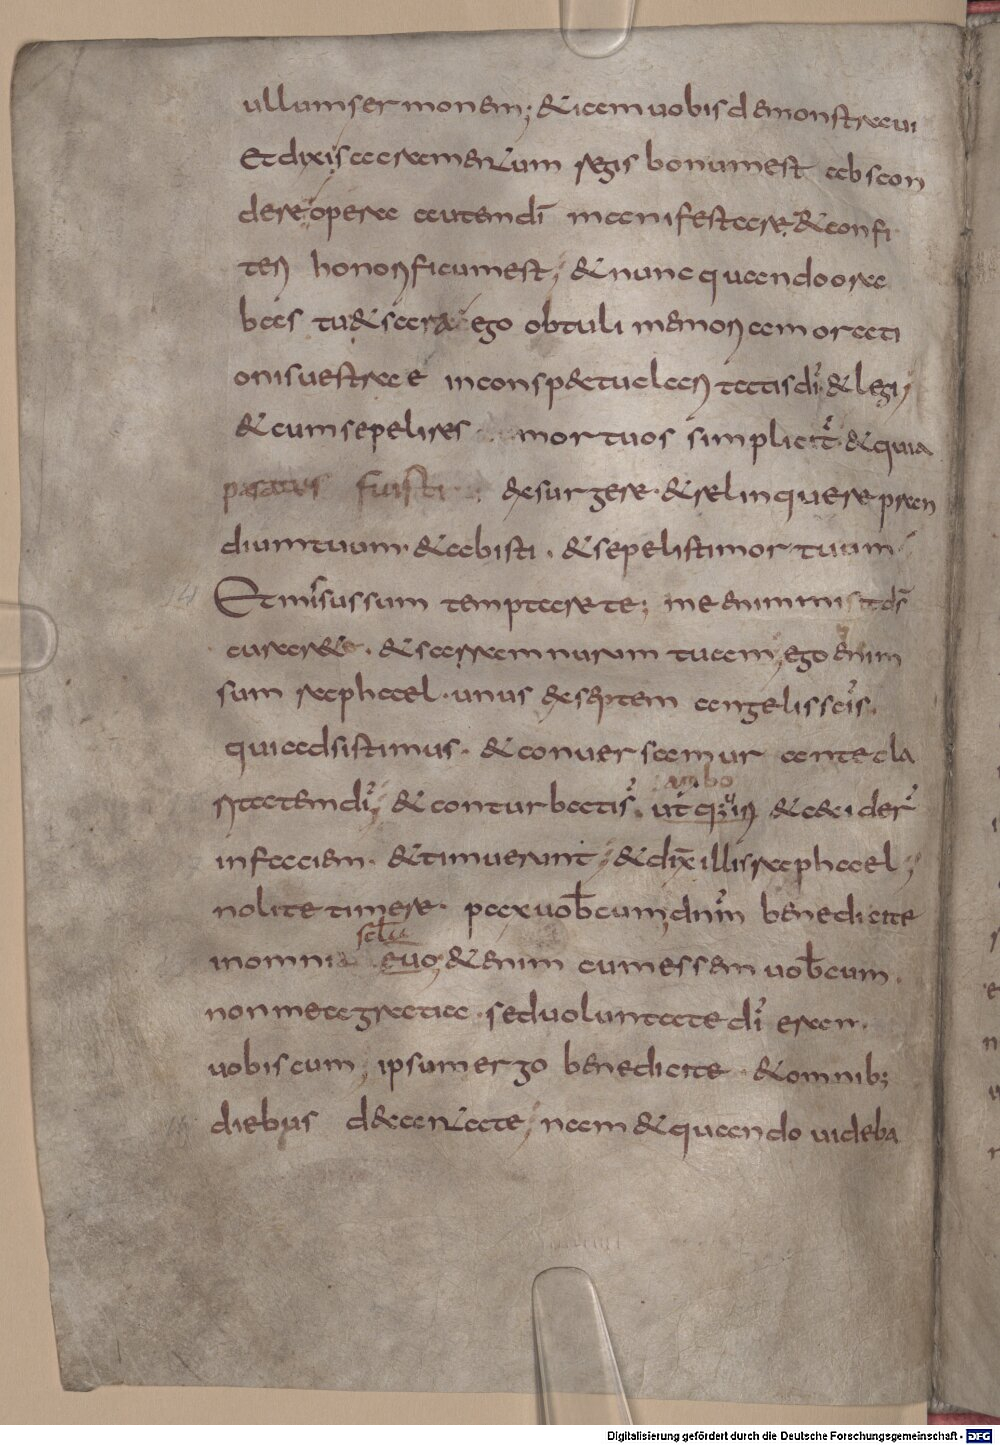 ullum sermonem; & iam uobis demonstraui
Et dixi sacramentum regis bonum est abscon
dere opera autem dī manifestare & confi
teri honorificum est; & nunc quando ora
bas tu & sarra ego obtuli memoriam orati
onis uestrae in conspectu claritatis dī & legi
& cum sepelires mortuos simplicit & quia
paratus fuisti exsurgere & relinquere pran
dium tuum & abisti & sepelisti mortuum
Et missus sum temptare te; me enim misit ds
curare & sarram nurum tuam; ego enim
sum raphael unus ex septem angelis scis
qui adsistimus & conuersamur ante cla
ritatem dī; & conturbati s
ambo
ut & cecider
in faciem & timuerunt; & dix illis raphael;
nolite timere pax uob cum; dnm benedicite
scla
in omni euo; & enim cum essem uob cum
non mea gratia sed uoluntate dī eram
uobis cum; ipsum ergo benedicite & omnib;
diebus decantate; nam & quando uideba
Digitalisierung gefördert durch die Deutsche Forschungsgemeinschaft - DFG